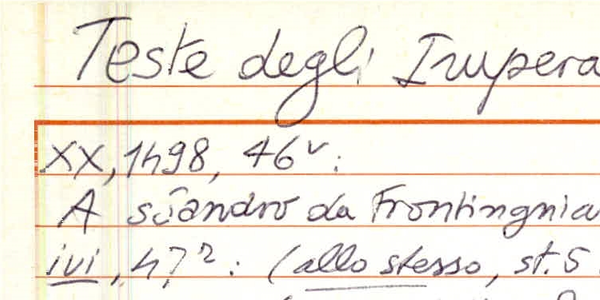 Teste degli Impera
XX, 1498, 46v:
A sciandro da Frontingnia
ivi, 47r: (allo stesso, st. 5